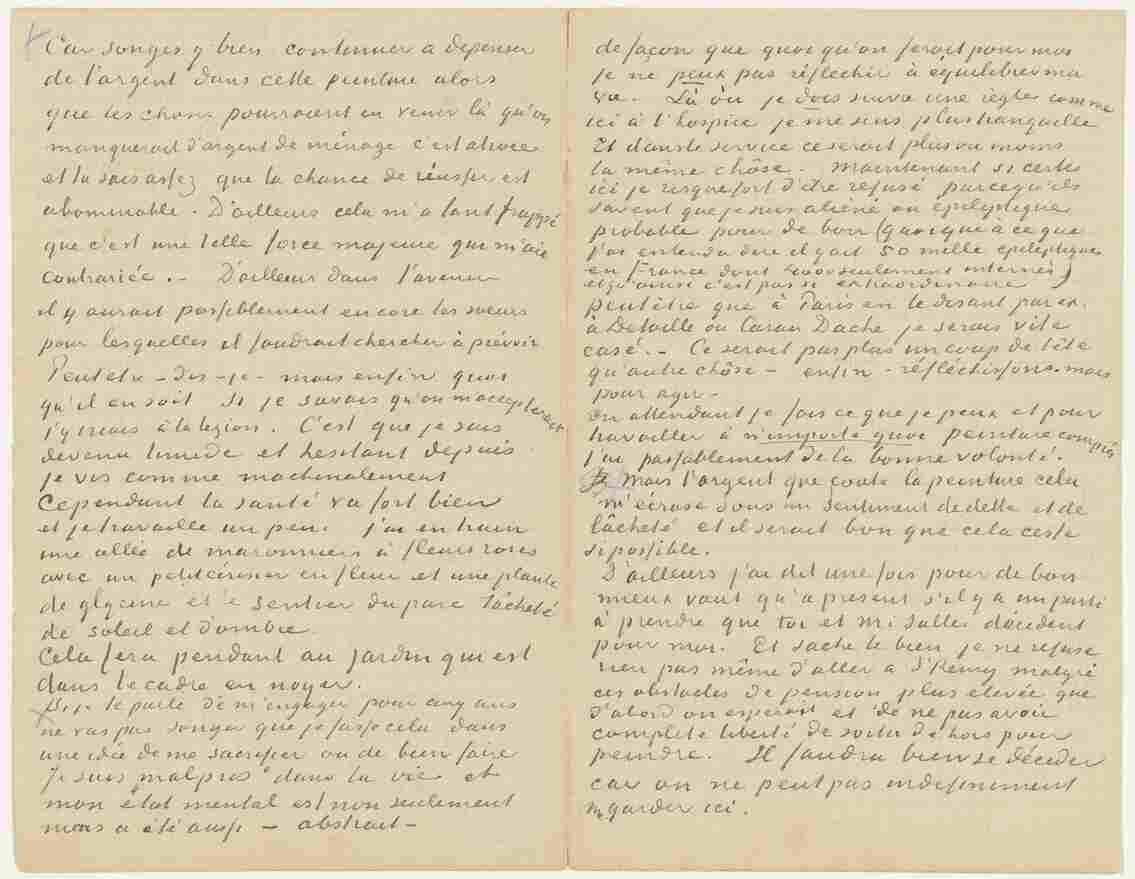 Car songes y bien continuer a depenser
de l'argent dans cette peinture alors
que les choses pourraient en venir là qu'on
manquerait d'argent de ménage c'est atroce
et tu sais assez que la chance de réussir est
abominable. D'ailleurs cela m'a tant frappé
que c'est une telle force majeure qui m'aie
contrariée. – D'ailleurs dans l'avenir
il y aurait possiblement encore les soeurs
pour lesquelles il faudrait chercher à prévoir
Peut etre – dis-je – mais enfin quoi
qu'il en soit si je savais qu'on m'accepterait
j'y irais à la legion. C'est que je suis
devenu timide et hesitant depuis
je vis comme machinalement
Cependant la santé va fort bien
et je travaille un peu. j'ai en train
une allée de maronniers à fleurs roses
avec un petit cerisier en fleur et une plante
de glycine et le sentier du parc tâcheté
de soleil et d'ombre.
Cela fera pendant au jardin qui est
dans le cadre en noyer.
Si je te parle de m'engager pour cinq ans
ne vas pas songer que je fasse cela dans
une idée de me sacrifier ou de bien faire
Je suis "mal pris" dans la vie et
mon état mental est non seulement
mais a été aussi – abstrait –
de façon que quoi qu'on ferait pour moi
je ne peux pas réflechir à équilibrer ma
vie. Là où je dois suivre une règle comme
ici à l'hospice je me sens plus tranquille
Et dans le service ce serait plus ou moins
la même chôse. Maintenant si certes
ici je risque fort d'être refusé parcequ'ils
savent que je suis aliéné ou epileptique
probable pour de bon (quoique à ce que
j'ai entendu dire il y ait 50 mille epileptiques
en France dont 4000 seulement internés)
et qu'ainsi c'est pas si extraordinaire
peutêtre que à Paris en le disant par ex.
à Detaille ou Caran Dache je serais vite
casé. – Ce serait pas plus un coup de tête
qu'autre chôse – enfin – réfléchissons. mais
pour agir –
En attendant je fais ce que je peux et pour
travailler à n'importe quoi peinture comprise
j'ai passablement de la bonne volonté.
Mais l'argent que coute la peinture cela
m'écrase sous un sentiment de dette et de
lâcheté et il serait bon que cela cesse
si possible.
D'ailleurs j'ai dit une fois pour de bon
mieux vaut qu'a present s'il y a un parti
à prendre que toi et M. Salles décident
pour moi. Et sache le bien je ne refuse
rien pas même d'aller a St Remy malgré
ces obstacles de pension plus elevée que
d'abord on esperait et de ne pas avoir
complete liberté de sortir dehors pour
peindre. Il faudra bien se décider
car on ne peut pas indefiniment
me garder ici.